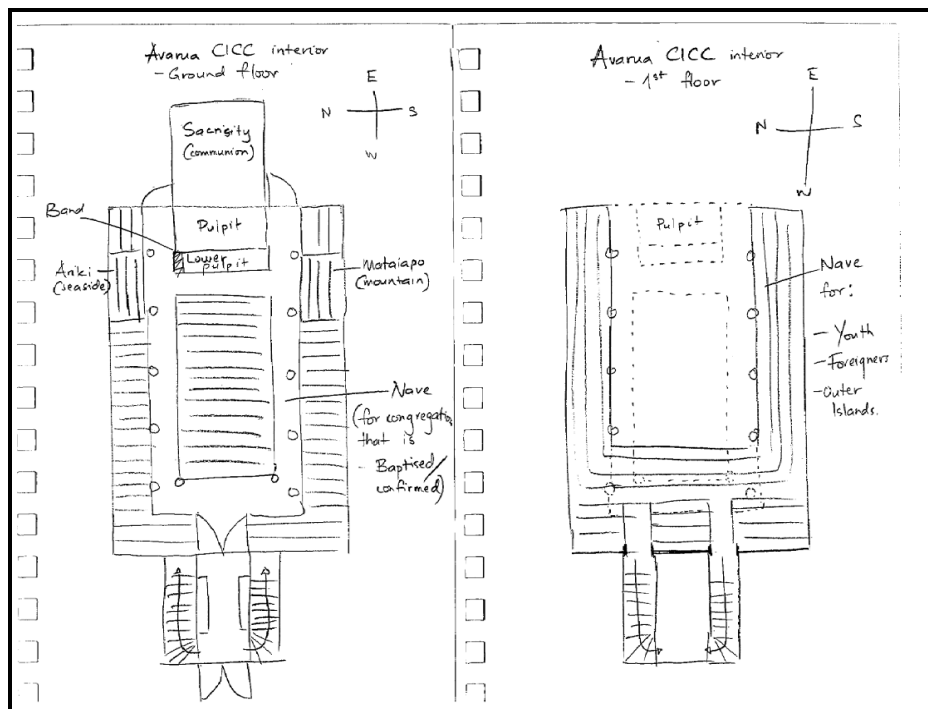 Avarua CICC interior
- Ground floor
E
N
S
W
Sacrisity
(communion)
Band
Pulpit
Lower
pulpit
Ariki
(seaside)
Mataiapo
(mountain)
Nave
(for congregation
that is
- Baptised/
confirmed)
Avarua CICC interior
- 1st floor
E
N
S
W
Pulpit
Nave
for:
- Youth
- Foreigners
- Outer
Islands.